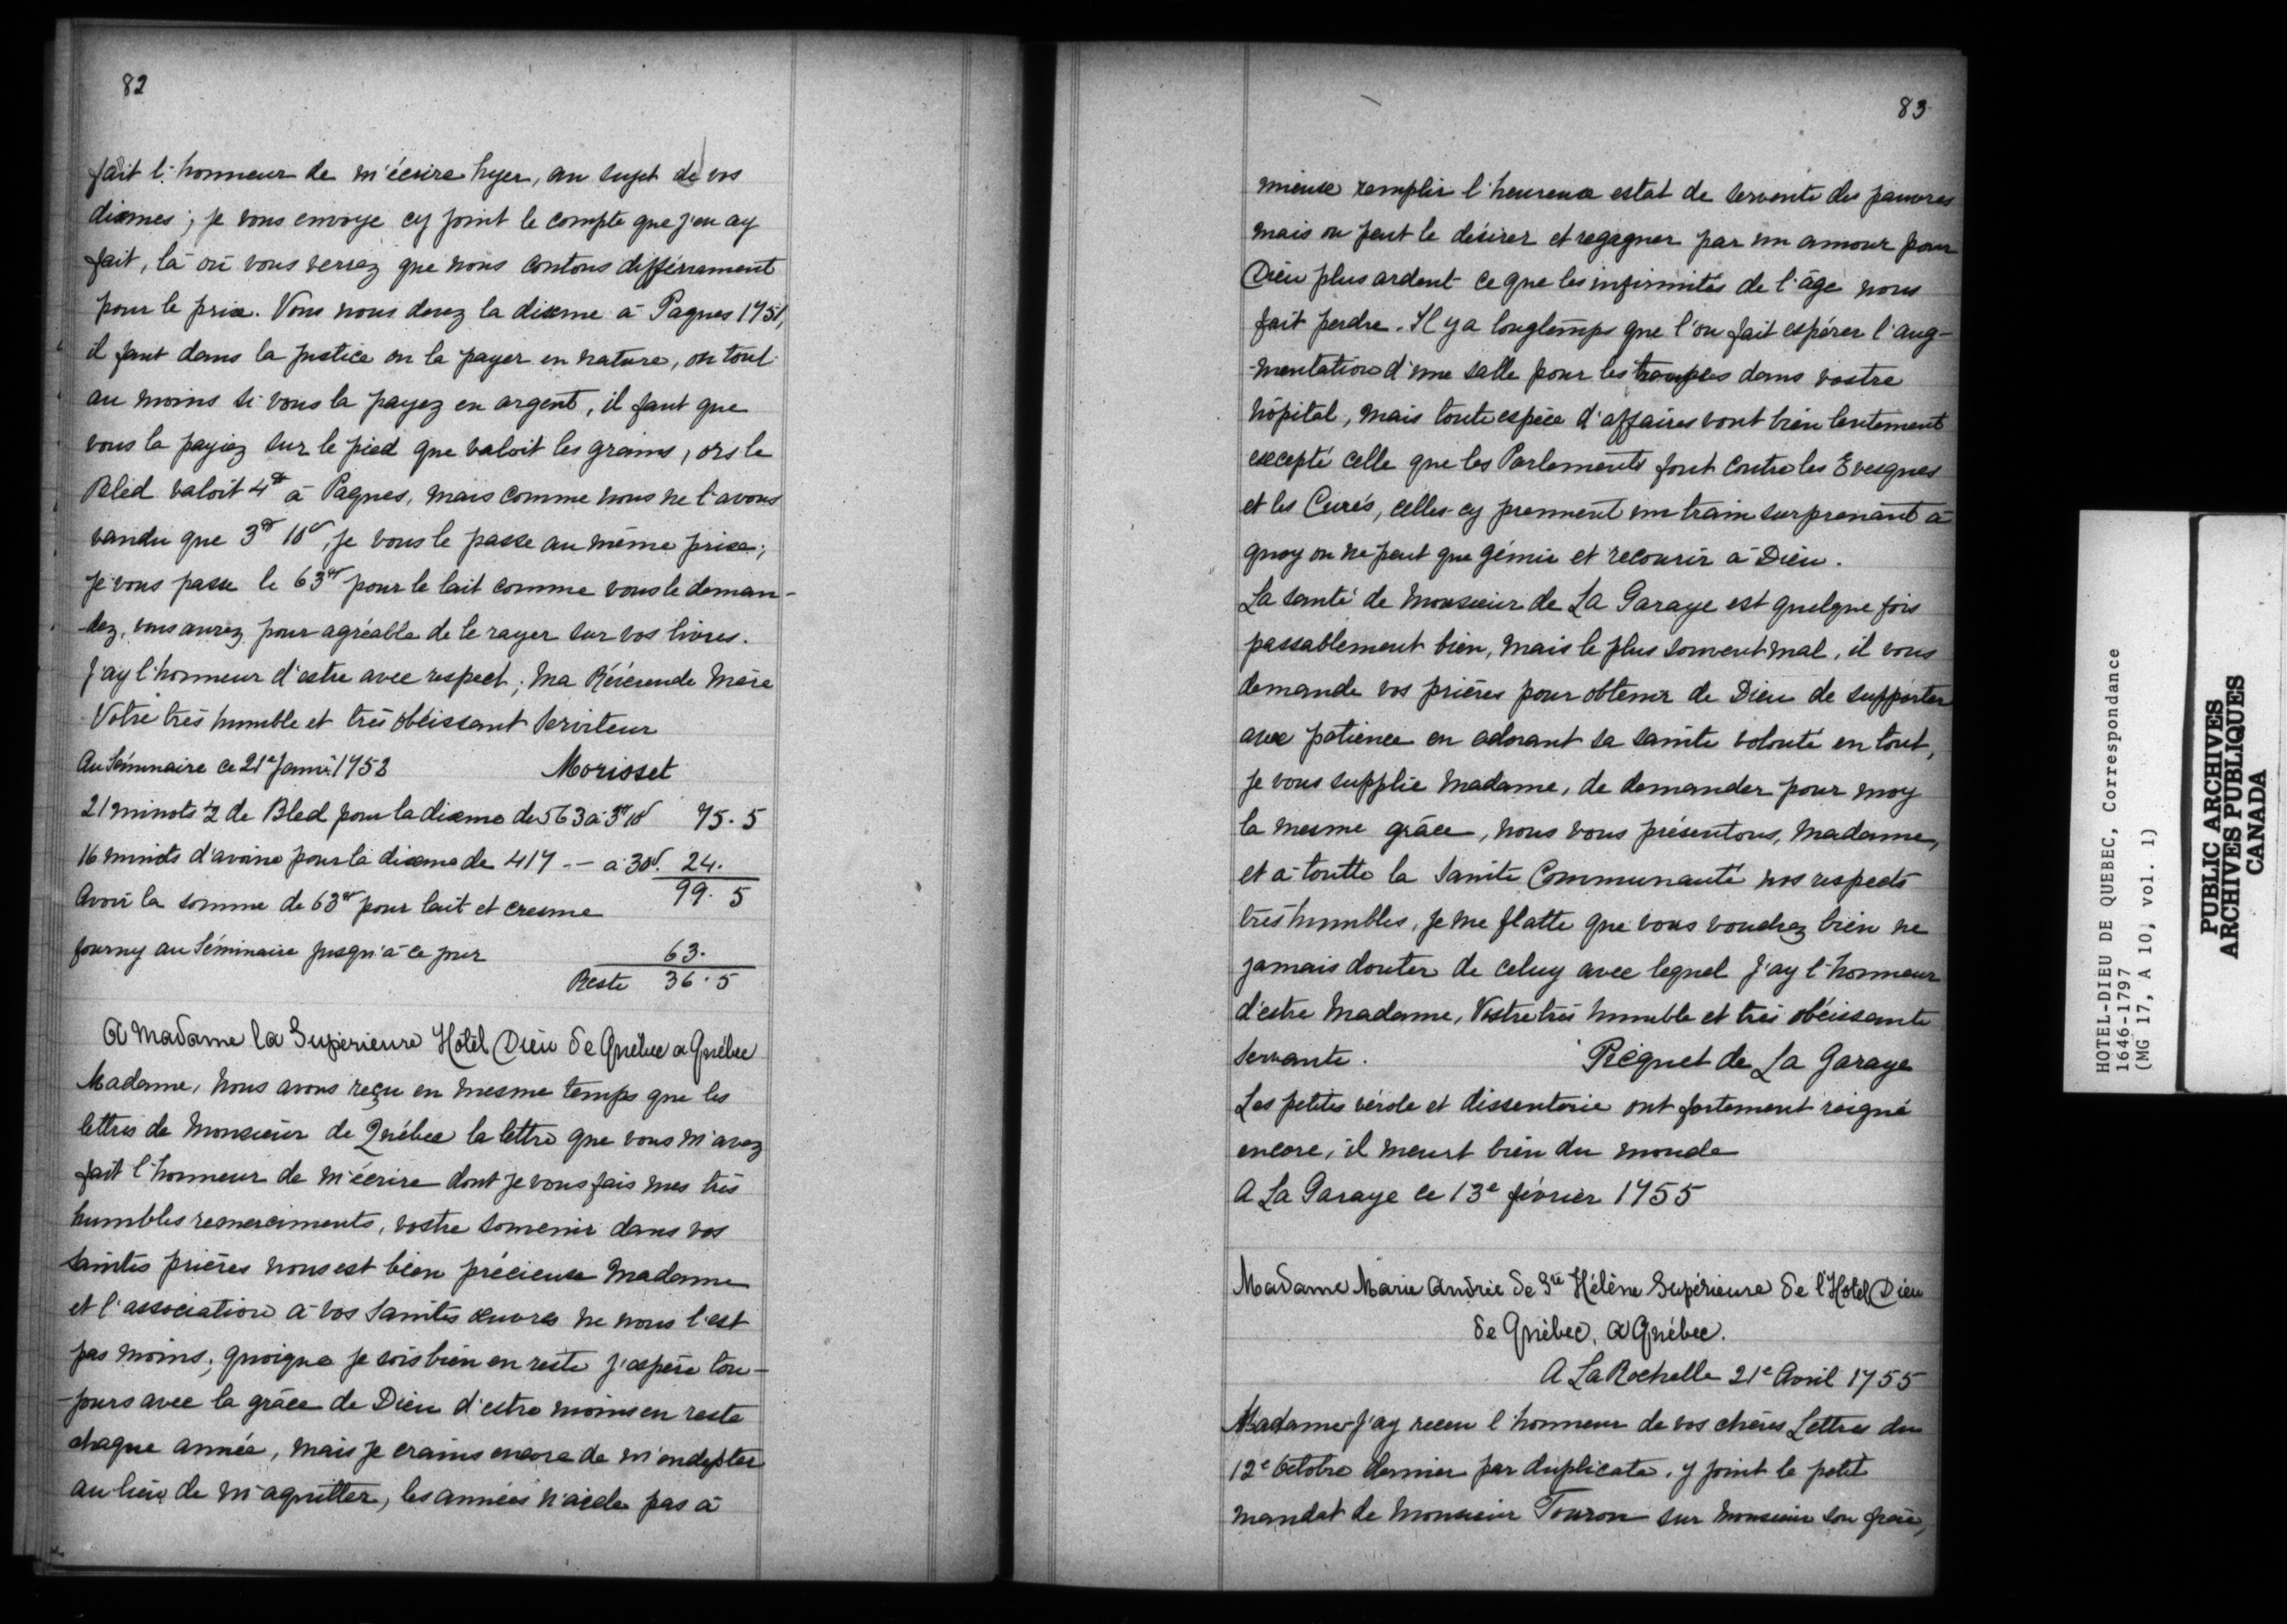 82
fait l'honneur de m'écrire hyer, au sujet de vos
dixmes; je vous envoye cy joint le compte que j'en ay
fait, là où vous verrez que nous contons différament
pour le prix. Vous nous devez la dixme à Paques 1751,
il faut dans la justice ou la payer en nature, ou tout
au moins si vous la payez en argent, il faut que
vous la payiez sur le pied que valoit les grains, ors le
Bled valoit 4# à Paques, mais comme nous ne l'avons
vandu que 3# 10s, je vous le passe au même prix;
je vous passe le 63# pour le lait comme vous le deman-
-dez, vous aurez pour agréable de le rayer sur vos livres.
J'ay l'honneur d'estre avec respect; Ma Révérende Mère
Votre très humble et très obéissant Serviteur
Au Séminaire ce 21e Janv. 1752 Morisset
21 minots ½ de Bled pour la dixme de 563 à 3# 10s 75.5
16 minots d'avoine pour la dixme de 417 -- à 30s. 24.
99.5
Avoir la somme de 63# pour lait et cresme
fourny au Séminaire jusqu'à ce jour 63.
Reste 36.5
A Madame la Supérieure Hôtel Dieu de Québec a Québec
Madame, nous avons reçu en mesme temps que les
lettres de Monsieur de Québec la lettre que vous m'avez
fait l'honneur de m'écrire dont je vous fais mes très
humbles remerciments, vostre souvenir dans vos
saintes prières nous est bien précieuse Madame
et l'association à vos Saintes œuvres ne nous l'est
pas moins; quoique je sois bien en reste j'espère tou-
-jours avec la grâce de Dieu d'estre moins en reste
chaque année, mais je crains encore de m'endepter
au lieu de m'aquitter, les années n'aide pas à
83
mieux remplir l'heureux estat de servente des pauvres
mais on peut le désirer et regagner par un amour pour
Dieu plus ardent ce que les infirmités de l'âge nous
fait perdre. Il y a longtemps que l'on fait espérer l'aug-
-mentation d'une salle pour les troupes dans vostre
hôpital, mais toute espèce d'affaires vont bien lentement
excepté celle que les Parlements font contre les Evesques
et les Curés, celles-cy prennent un train surprenant à
quoy on ne peut que gémir et recourir à Dieu.
La santé de Monsieur de La Garaye est quelque fois
passablement bien, mais le plus souvent mal, il vous
demande vos prières pour obtenir de Dieu de supporter
avec patience en adorant sa sainte volonté en tout,
je vous supplie Madame, de demander pour moy
la mesme grâce, nous vous présentons, Madame,
et à toutte la Sainte Communauté nos respects
très humbles, je me flatte que vous voudrez bien ne
jamais douter de celuy avec lequel j'ay l'honneur
d'estre Madame, Vostre très humble et très obéissante
Servante. Picquet de La Garaye
Les petites vérole et dissenterie ont fortement reigné
encore, il meurt bien du monde
A La Garaye ce 13e février 1755
Madame Marie Andrée de Ste Hélène Supérieure de l'Hotel Dieu
de Québec, a Québec.
A La Rochelle 21e Avril 1755
Madame J'ay receu l'honneur de vos chères Lettres du
12e Octobre dernier par duplicata, y joint le petit
mandat de Monsieur Touron sur Monsieur son frère,
HOTEL-DIEU DE QUEBEC, Correspondance
1646-1797
(MG 17, A 10, vol. 1)
PUBLIC ARCHIVES
ARCHIVES PUBLIQUES
CANADA